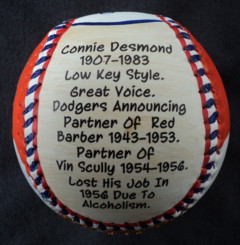 Connie Desmond
1907-1983
Low Key Style.
Great Voice.
Dodgers Announcing
Partner Of Red
Barber 1943-1953.
Partner Of
Vin Scully 1954-1956.
Lost His Job In
1956 Due To
Alcoholism.